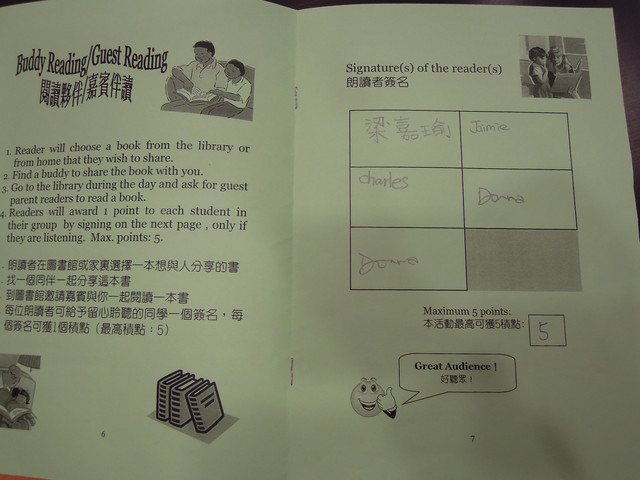 Buddy Reading/Guest Reading
閱讀夥伴/嘉賓伴讀
1. Reader will choose a book from the library or
from home that they wish to share.
2. Find a buddy to share the book with you.
3. Go to the library during the day and ask for guest
parent readers to read a book.
4. Readers will award 1 point to each student in
their group by signing on the next page , only if
they are listening. Max. points: 5.
朗讀者在圖書館或家裏選擇一本想與人分享的書
找一個同伴一起分享這本書
到圖書館邀請嘉賓與你一起閱讀一本書
每位朗讀者可給予留心聆聽的同學一個簽名，每
個簽名可獲1個積點（最高積點：5）
6
Signature(s) of the reader(s)
朗讀者簽名
梁嘉瑜 Jamie
charles
Donna
Maximum 5 points:
本活動最高可獲5積點:
5
Great Audience !
好聽眾！
7